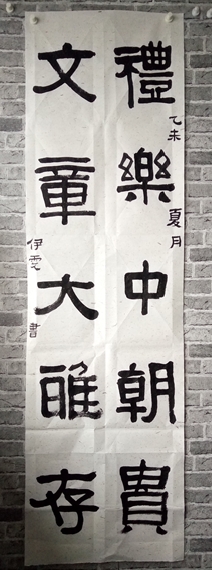 禮樂中朝貴
乙未夏月
文章大雅存
伊雲書